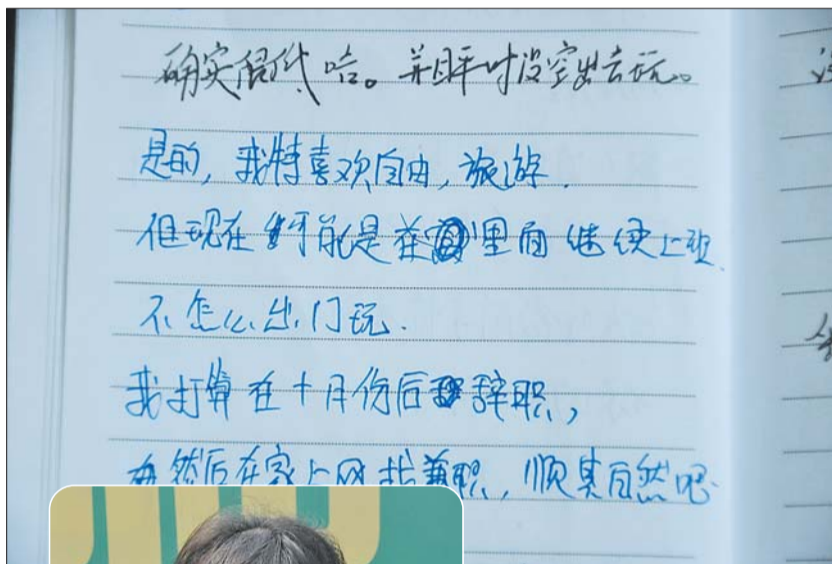 确实很低哈。并且平时没空出去玩。
是的，我特喜欢自由，旅游.
但现在只能是在里面继续上班.
不怎么出门玩.
我打算在十月份后辞职，
然后在家上网找兼职，顺其自然吧.